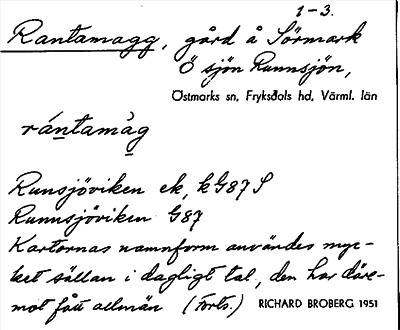 1-3.
Rantamagg, gård å Sörmark
Ö sjön Runnsjön,
Östmarks sn, Fryksdals hd, Värml. län
rántamàg
Runsjöviken ek, kG87 S
Runnsjöviken G87
Kartornas namnform användes myc-
ket sällan i dagligt tal, den har däre-
mot fått allmän (forts.) RICHARD BROBERG 1951